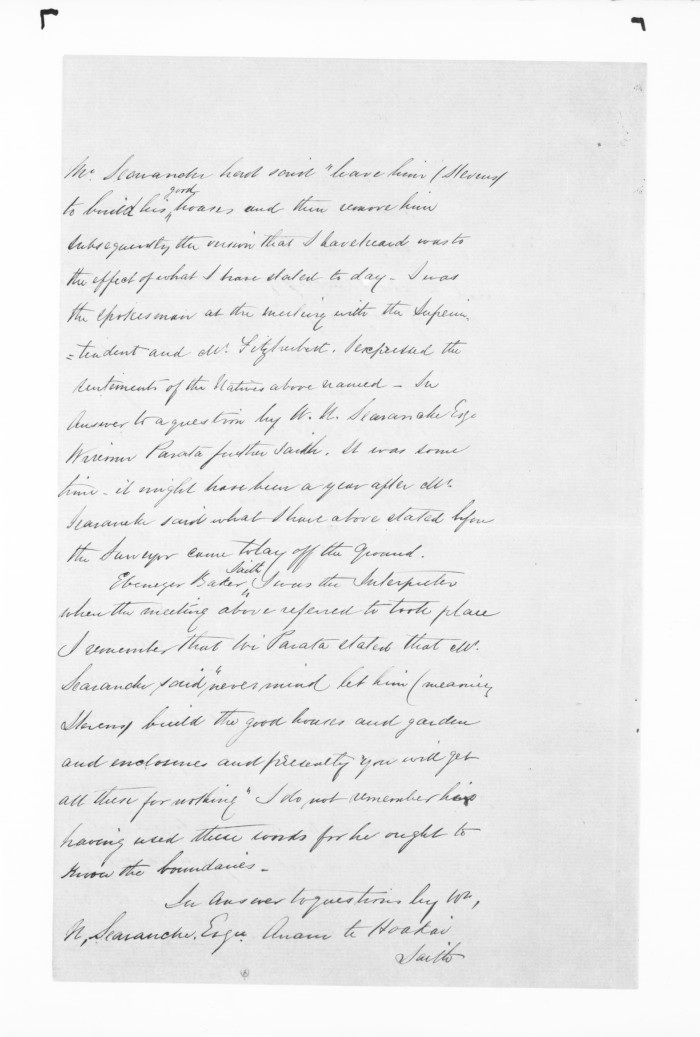 Mr. Searancke had said "leave him (Stevens)
to build his good houses and then remove him
subsequently the version that I have heard was to
the effect of what I have stated to day - I was
the spokesman at the meeting with the Superin,
=tendent and Mr. Fitzherbert. I expressed the
sentiments of the Natives above named - In
Answer to a question by W. N. Searancke Esqe
Wiremu Parata further saith. It was some
time - it might have been a year after Mr.
Searancke said what I have above stated before
the Surveyor came to lay off the Ground.
Ebenezer Baker Saith, I was the Interpreter
when the meeting above referred to took place
I remember that Wi Parata stated that Mr.
Searancke said, "never mind let him (meaning
Stevens) build the good houses and garden
and enclosures and presently you will get
all these for nothing" I do not remember his
having used these words for he ought to
know the boundaries -
In Answer to questions by Wm,
N, Searancke. Esqre. te
Saith